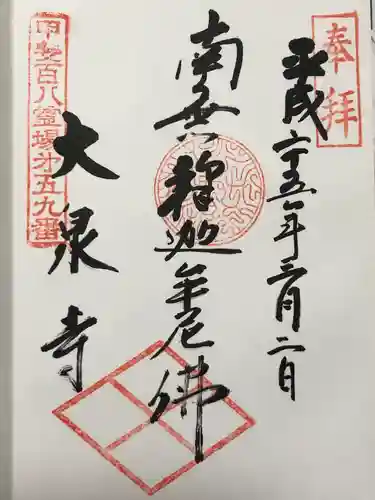 奉拝
平成二十五年三月二日
南無釈迦牟尼佛
大泉寺
甲斐百八霊場第五九番